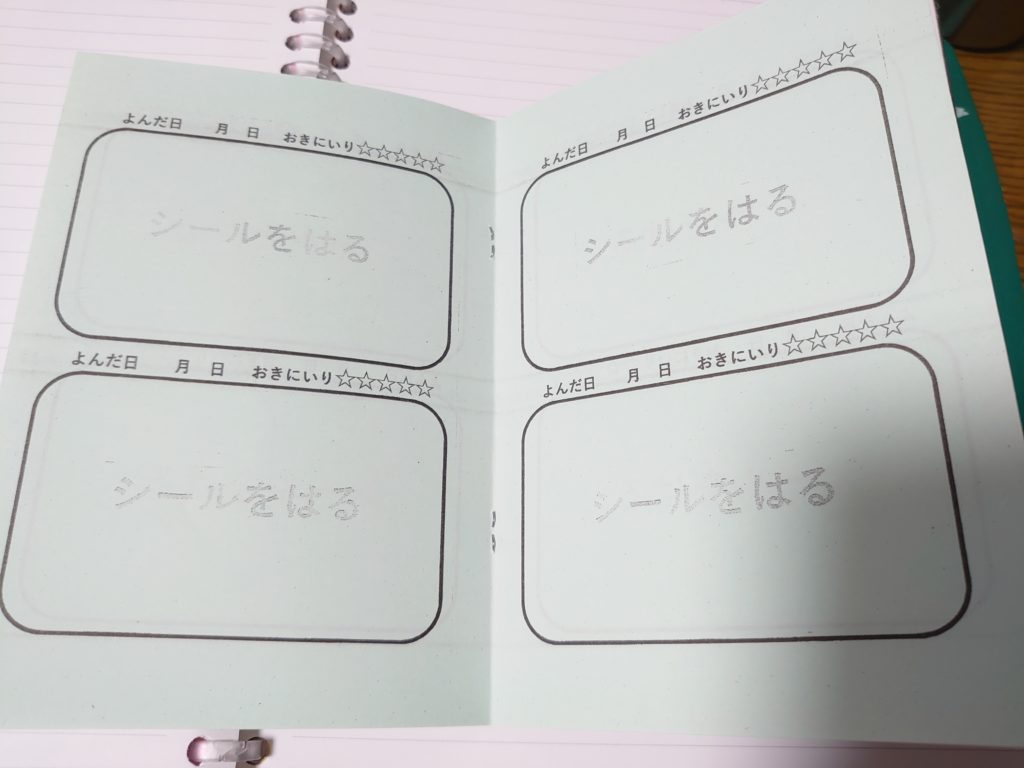 よんだ日 月 日 おきにいり☆☆☆☆☆
シールをはる
よんだ日 月 日 おきにいり☆☆☆☆☆
シールをはる
よんだ日 月 日 おきにいり☆☆☆☆☆
シールをはる
よんだ日 月 日 おきにいり☆☆☆☆☆
シールをはる